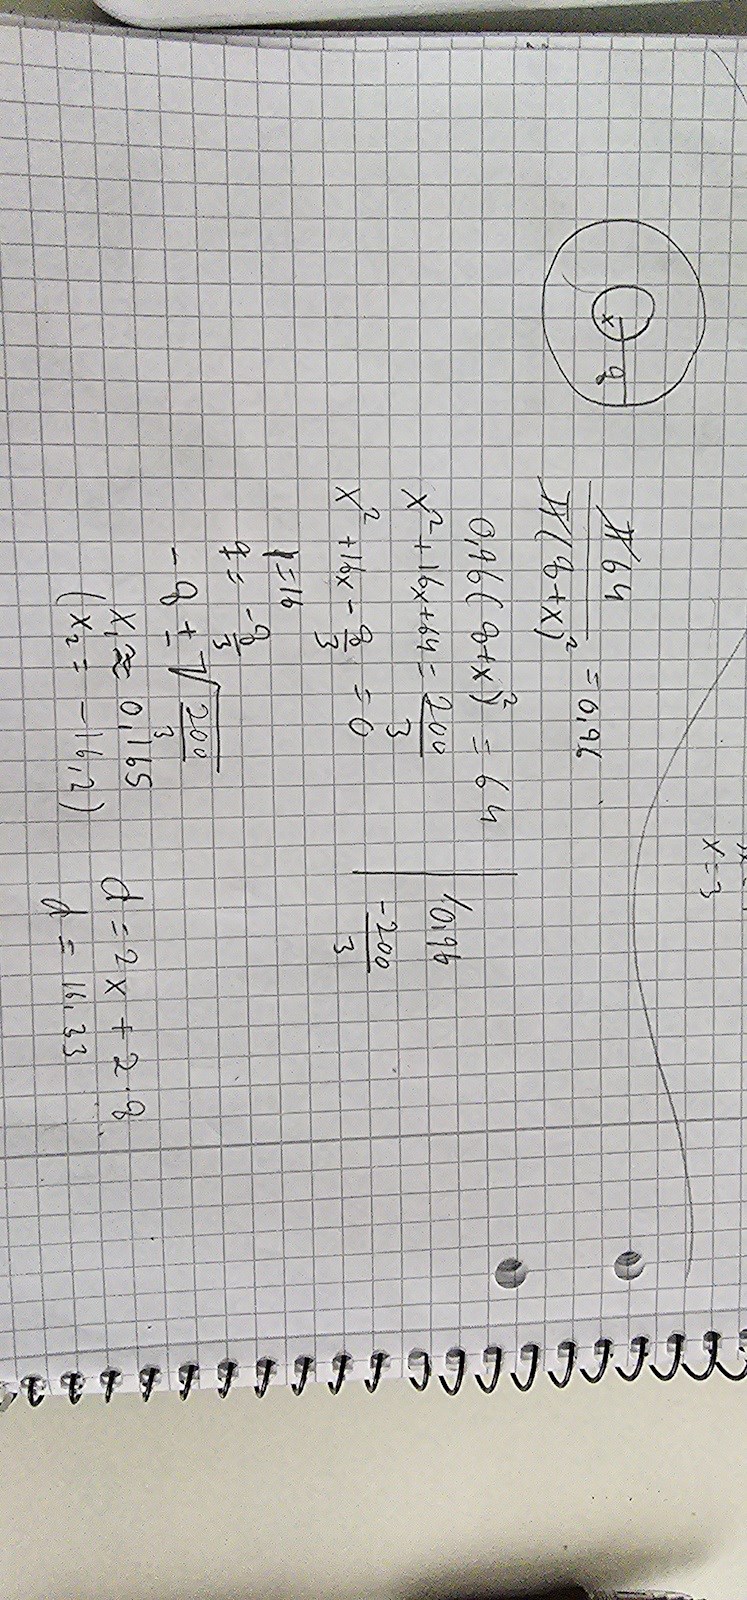 x = 3
x 8
π64 / π(8+x)² = 0,96
0,96(8+x)² = 64 | /0,96
x² + 16x + 64 = 200/3 | -200/3
x² + 16x - 8/3 = 0
p = 16
q = -8/3
-8 ± √200/3
x₁ ≈ 0,165 d = 2x + 2·8
(x₂ = -16,2) d = 16,33